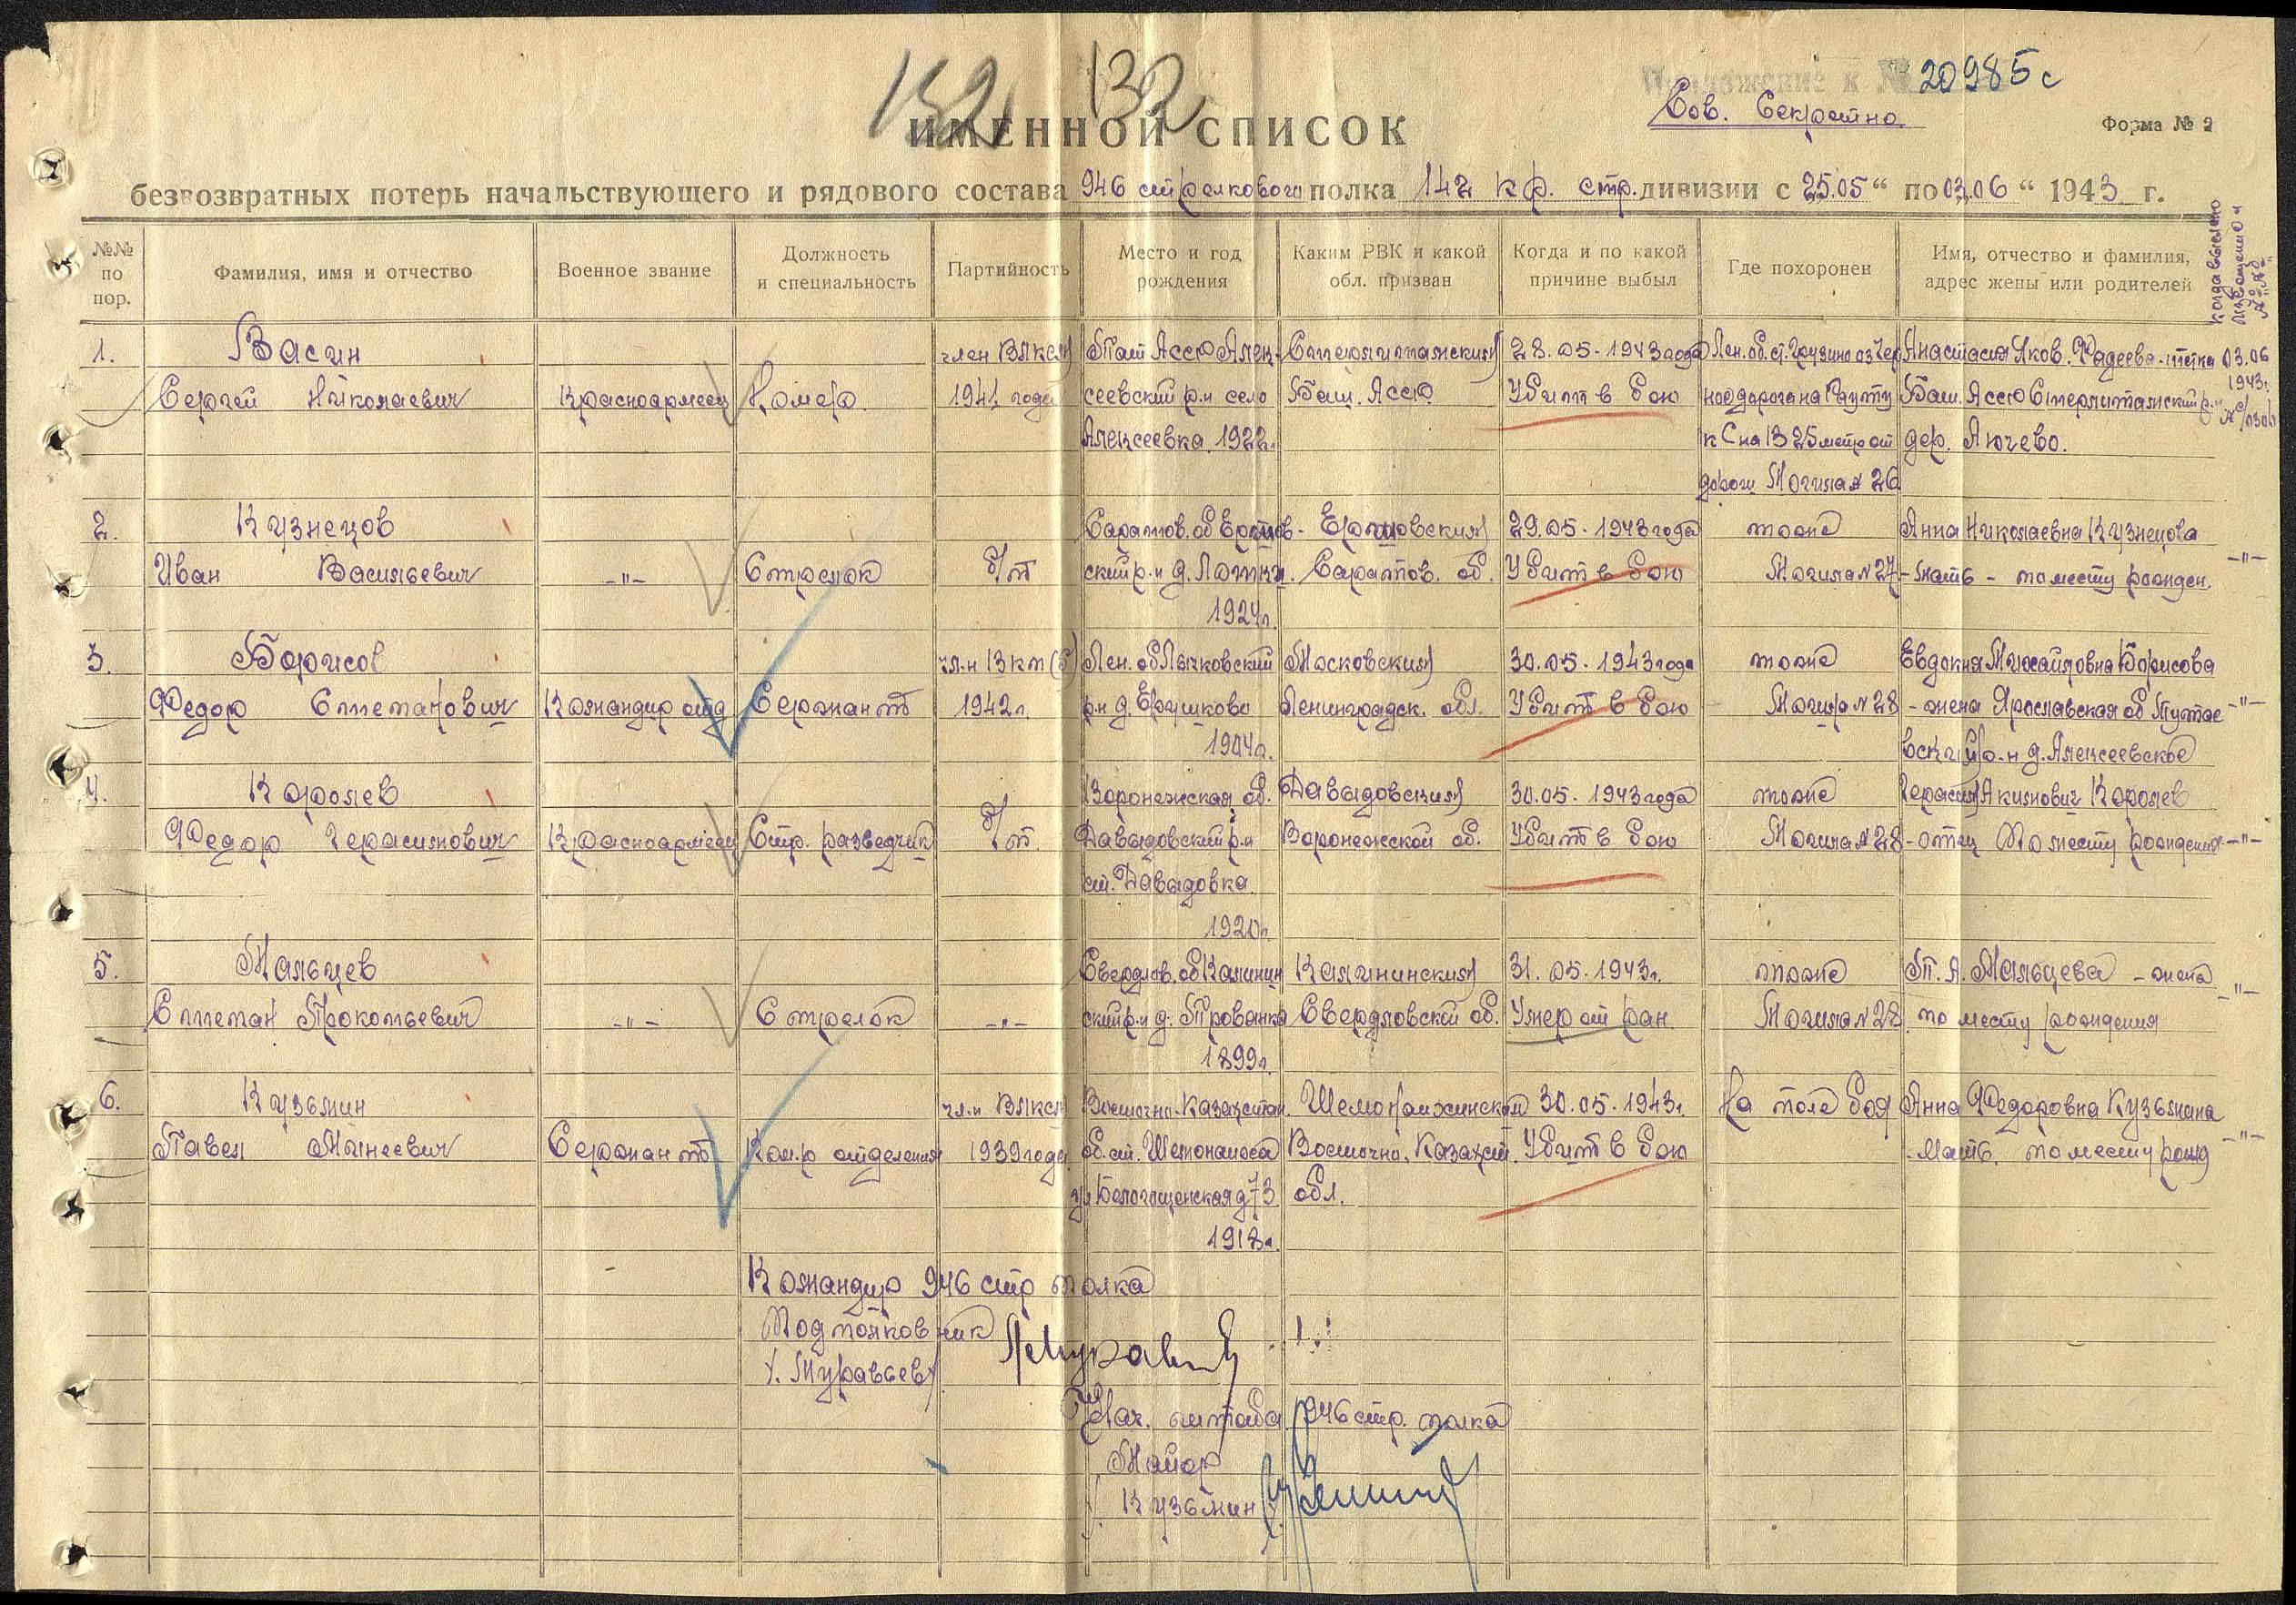 152 132
Приложение к № 20985с
Сов. Секретно
Форма № 2
ИМЕННОЙ СПИСОК
безвозвратных потерь начальствующего и рядового состава 946 стрелкового полка 142 кр. стр. дивизии с 25.05 " по 03.06 " 1943 г.
№№ по пор.
Фамилия, имя и отчество
Военное звание
Должность и специальность
Партийность
Место и год рождения
Каким РВК и какой обл. призван
Когда и по какой причине выбыл
Где похоронен
Имя, отчество и фамилия, адрес жены или родителей
Когда выслано извещение и
1. Васин член ВЛКСМ Тат АССР Алек- Стерлитамакским 28.05-1943 года Лен. об. ст. Грузино Анастасия Яков. Фадеева-тетка 03.06
Сергей Николаевич Красноармеец Номер 1941 года сеевский р-н село Баш. АССР Убит в бою дорога на Рауту Баш. АССР Стерлитамакский р-н 1943г.
Алексеевка 1922г. к С на 1325 метр от дер. Аючево.
дороги Могила № 26
2. Кузнецов Саратов. об Ершов- Ершовским 29.05-1943 года тоже Анна Николаевна Кузнецова
Иван Васильевич -"- Стрелок б/п ский р-н д. Саратов. об. Убит в бою Могила №27 - мать - по месту рожден. -"-
1924г.
3. Борисов чл-н ВКП(б) Лен. об Лычковский Московским 30.05-1943 года тоже Евдокия Михайловна Борисова
Федор Степанович Командир отд Сержант 1942г. р-н д. Ершково Ленинградск. обл. Убит в бою Могила №28 - жена Ярославская об Тутае- -"-
1904г. вский р-н д. Алексеевское
4. Королев Воронежская об. Давыдовским 30.05.1943 года тоже Герасим Акимович Королев
Федор Герасимович Красноармеец Стр. разведчик б/п. Давыдовский р-н Воронежской об. Убит в бою Могила №28 - отец По месту рождения -"-
ст. Давыдовка
1920г.
5. Мальцев Свердлов. об Калинин Калининским 31.05.1943г. тоже П. А. Мальцева - жена
Степан Прокопьевич -"- Стрелок -"- ский р-н д. Свердловской об. Умер от ран Могила №28 по месту рождения -"-
1899г.
6. Кузьмин чл-н ВЛКСМ Восточно-Казахстан. Шемонаихинским 30.05.1943г. На поле боя Анна Федоровна Кузьмина
Павел Сержант Ком-р отделения 1939 года об. ст. Шемонаиха Восточно. Казахст. Убит в бою - Мать. по месту рожд -"-
ул д 73 обл.
1918г.
Командир 946 стр полка
Подполковник
/. Муравьев/
Нач. штаба 946 стр. полка
Майор
/. Кузьмин /.